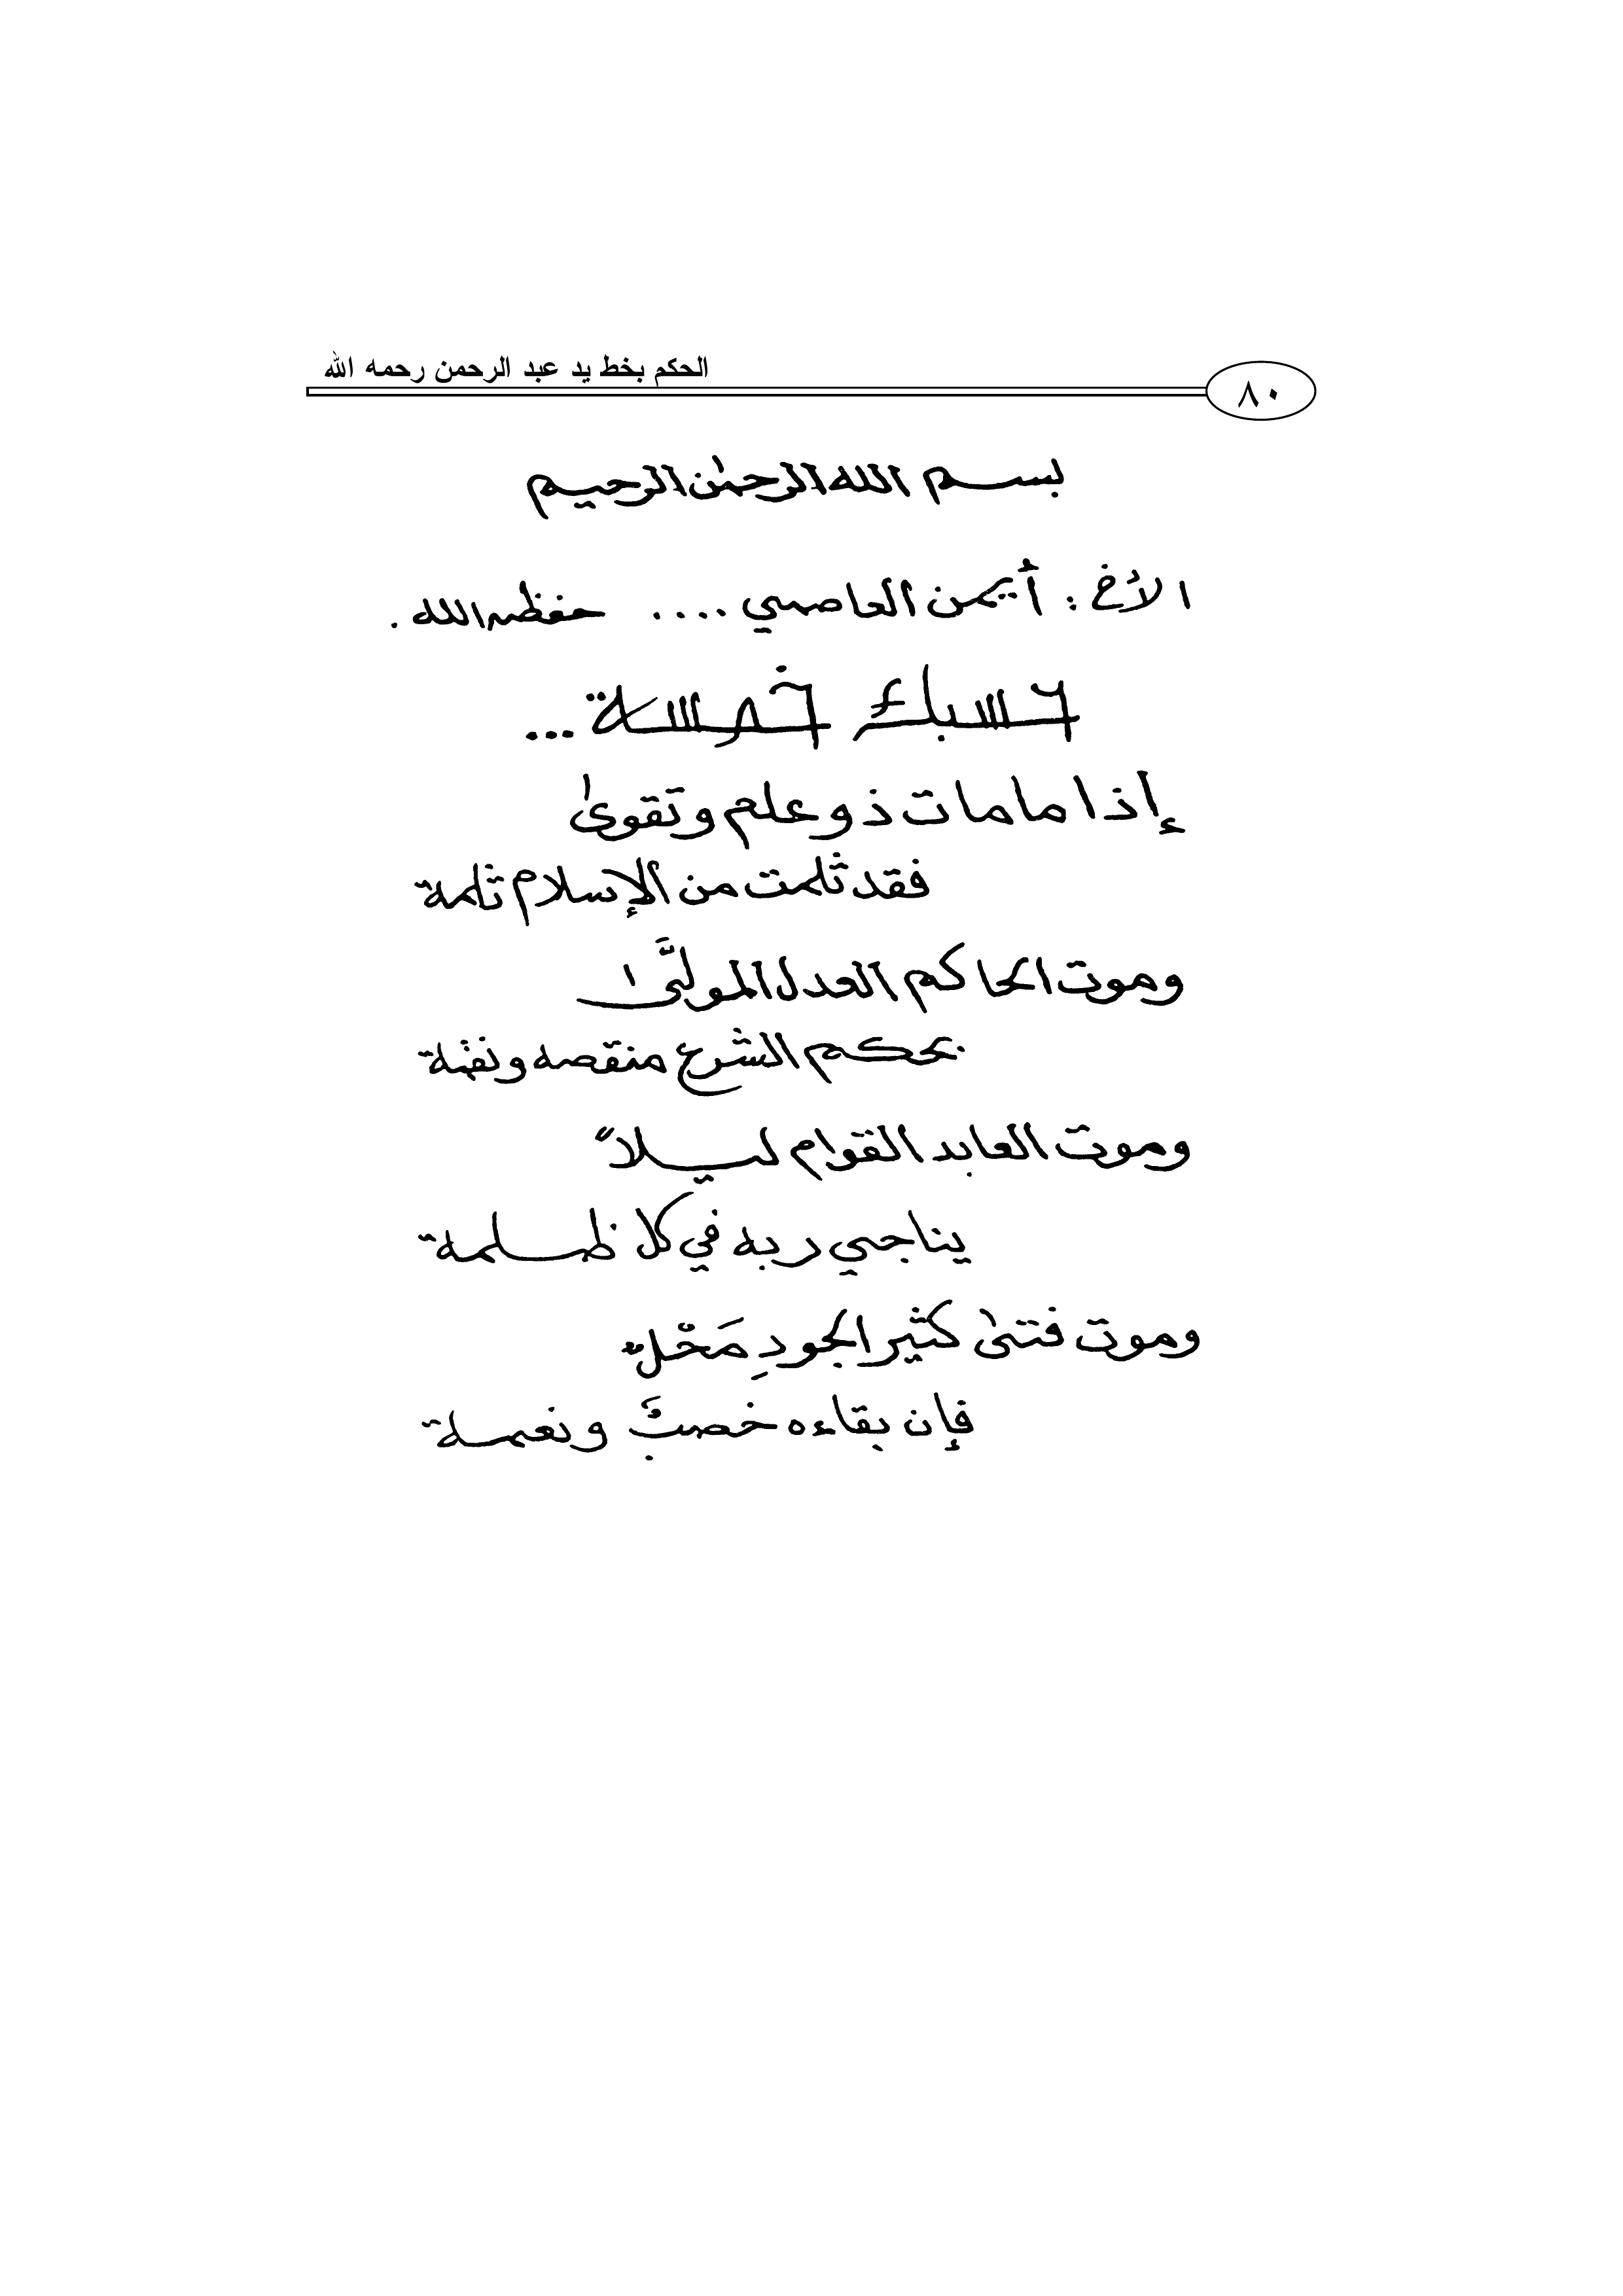 الحكم بخط يد عبد الرحمن رحمه الله
٨٠
بسم الله الرحمٰن الرحيم
الأخ : أيمن العاصمي .... حفظه الله .
حسبك خمسة ...
إذا ما مات ذو علم وتقوىٰ
فقد ثلمت من الإسلام ثلمة
وموت الحاكم العدل المولَّىٰ
بحكم الشرع منقصة ونقمة
وموت العابد القوام ليلاً
يناجي ربه في كل ظلمة
وموت فتىٰ كثير الجودِ مَحْلٌ
فإن بقاءه خصبٌ ونعمة